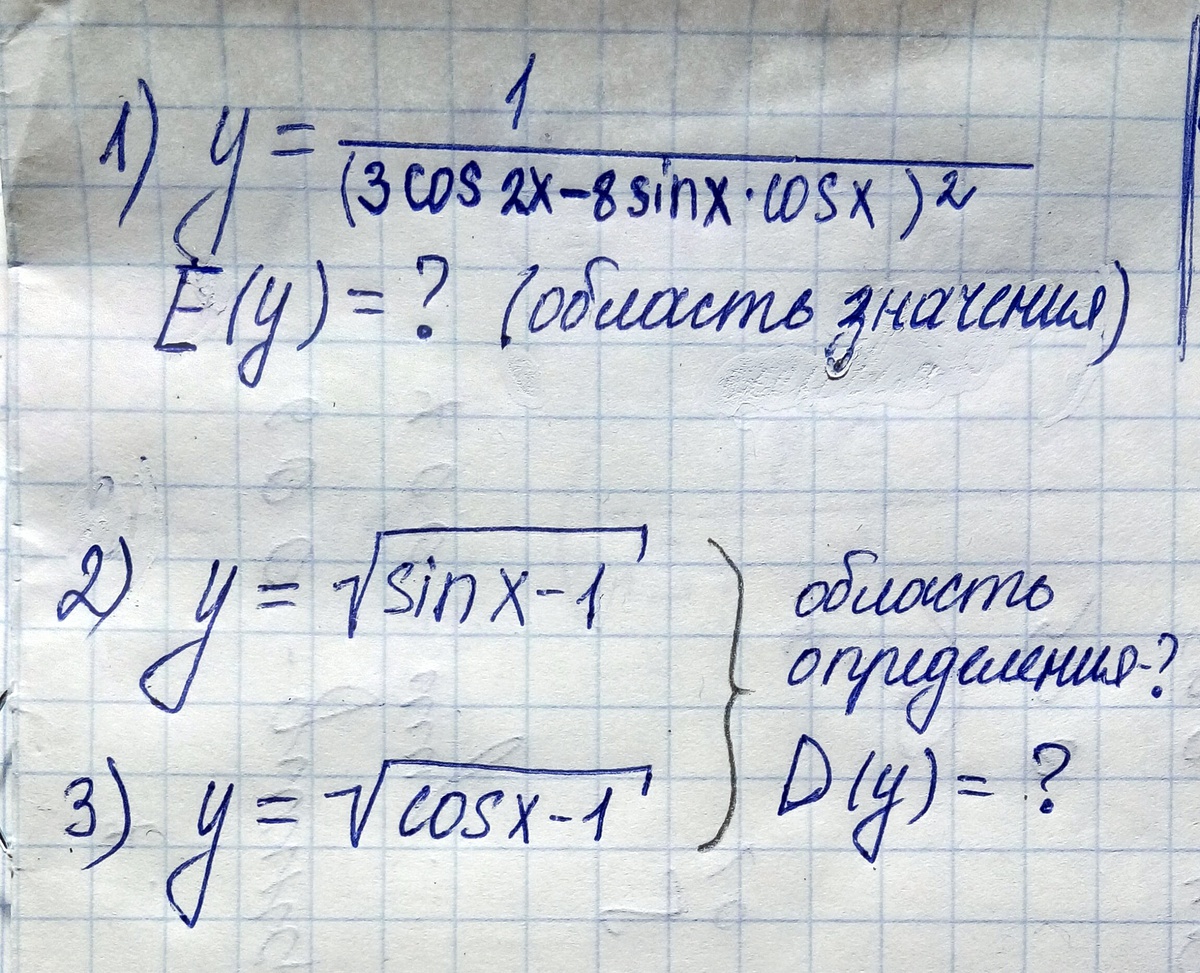 1) y = 1 / (3cos2x-8sinx·cosx)²
E(y) = ? (область значения)
2) y = √(sinx-1)
область
определения-?
3) y = √(cosx-1)
D(y) = ?